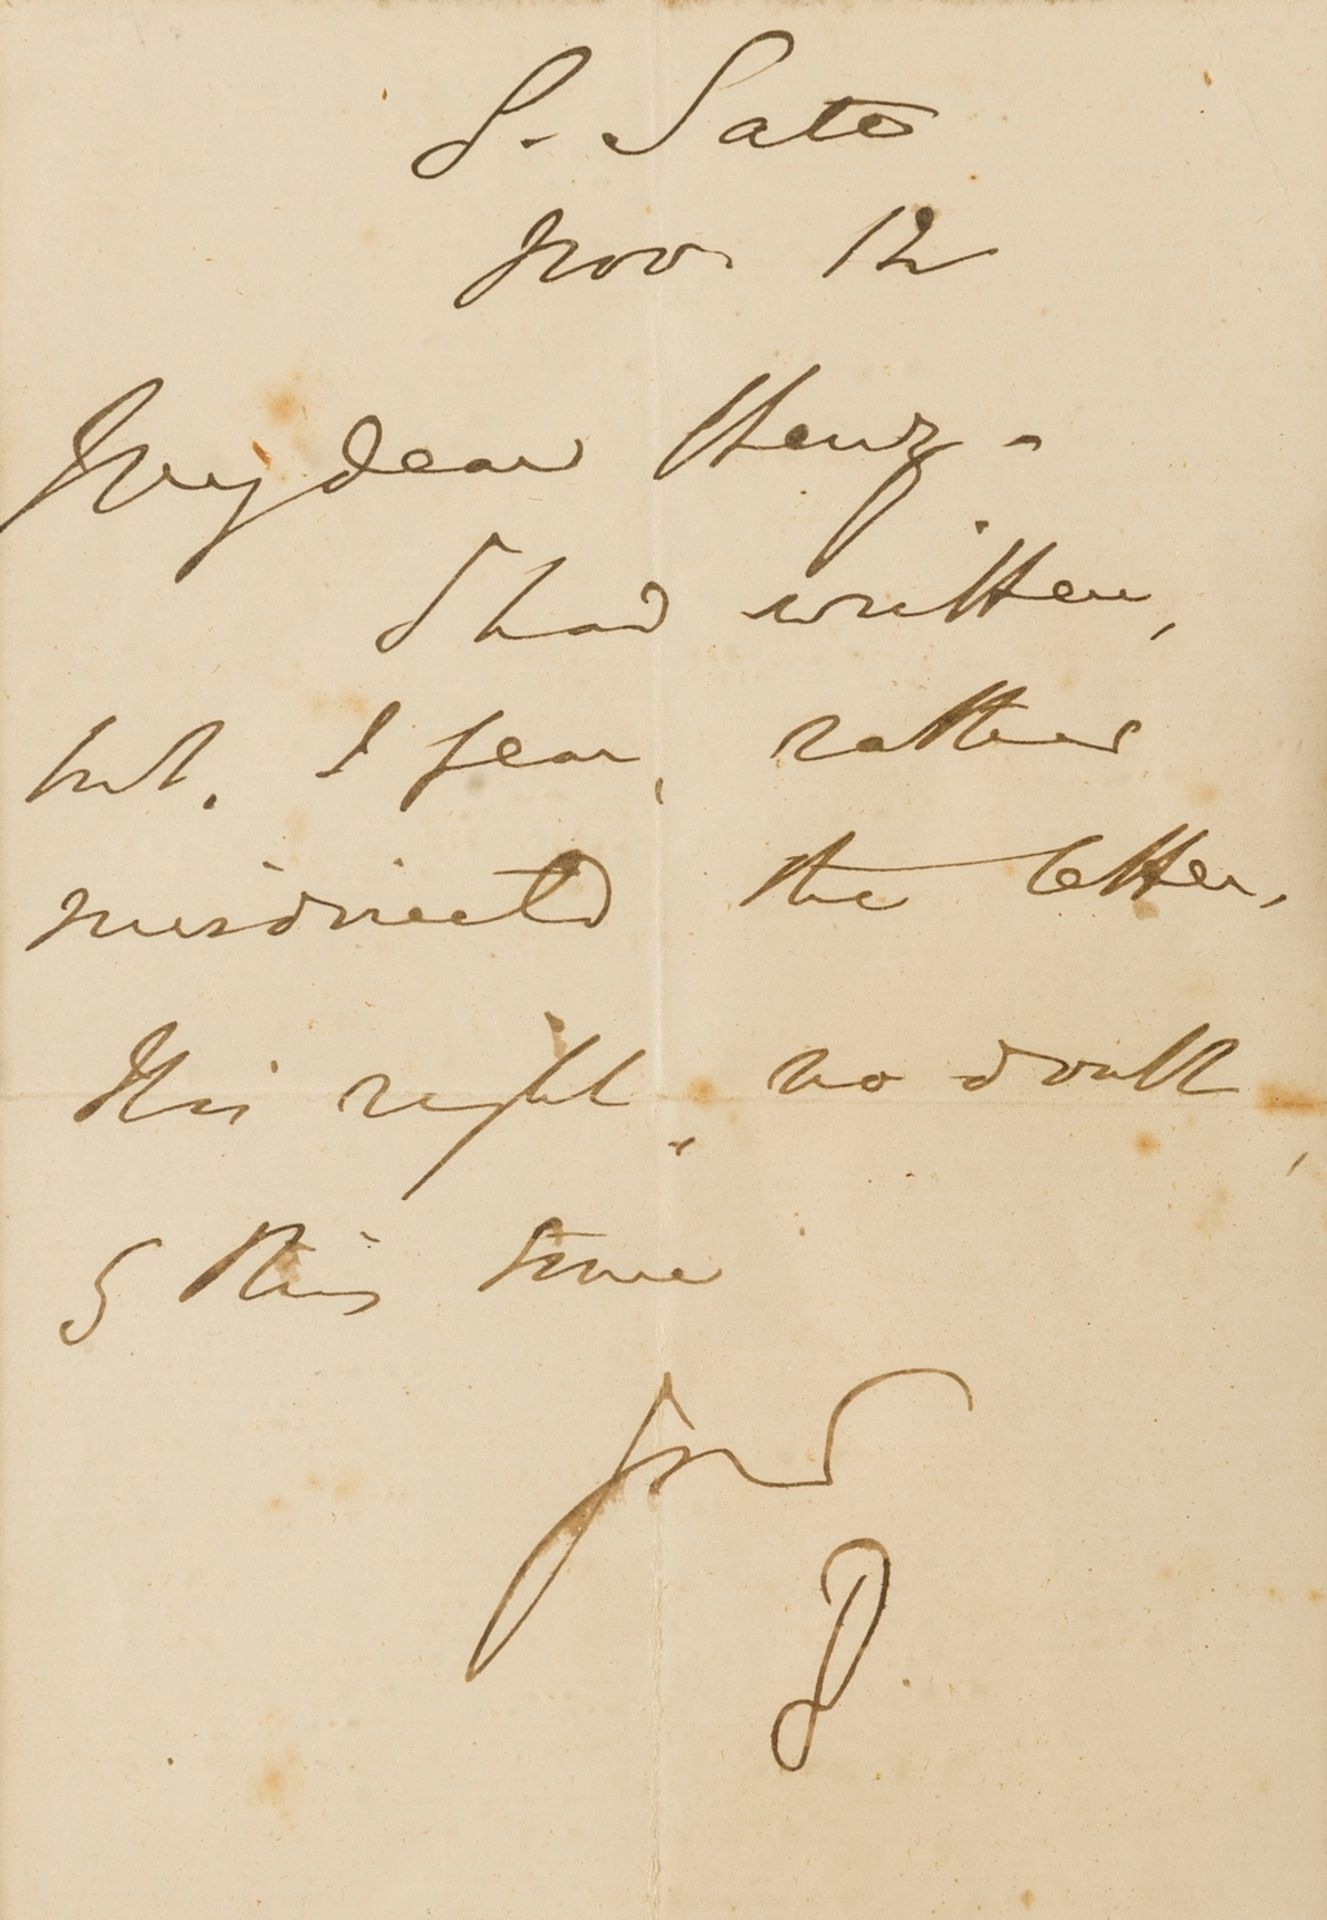 G. Gate
Nov. 12
My dear Henry -
I had written,
but, I fear, rather
misdirected the letter,
It is right, no doubt,
by this time
D